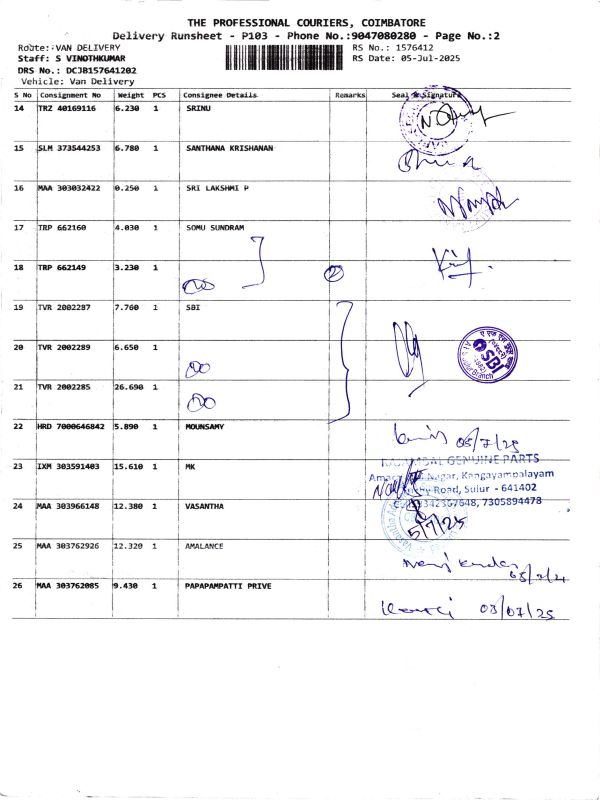 THE PROFESSIONAL COURIERS, COIMBATORE
Delivery Runsheet - P103 - Phone No.:9047080280 - Page No.:2
Route: VAN DELIVERY
RS No.: 1576412
Staff: S VINOTHKUMAR
RS Date: 05-Jul-2025
DRS No.: DCJB157641202
Vehicle: Van Delivery
S No Consignment No Weight PCS Consignee Details Remarks Seal & Signature
14 TRZ 40169116 6.230 1 SRINU
15 SLM 373544253 6.780 1 SANTHANA KRISHANAN
16 MAA 303032422 0.250 1 SRI LAKSHMI P
17 TRP 662160 4.030 1 SOMU SUNDRAM
18 TRP 662149 3.230 1 2
19 TVR 2002287 7.760 1 SBI
20 TVR 2002289 6.650 1
SBI
21 TVR 2002285 26.690 1
22 HRD 7000646842 5.890 1 MOUNSAMY
05/7/25
GENUINE PARTS
23 IXM 303591403 15.610 1 MK
Nagar, Kangayampalayam
Road, Sulur - 641402
7305894478
24 MAA 303966148 12.380 1 VASANTHA
5/7/25
25 MAA 303762926 12.320 1 AMALANCE
26 MAA 303762085 9.430 1 PAPAPAMPATTI PRIVE